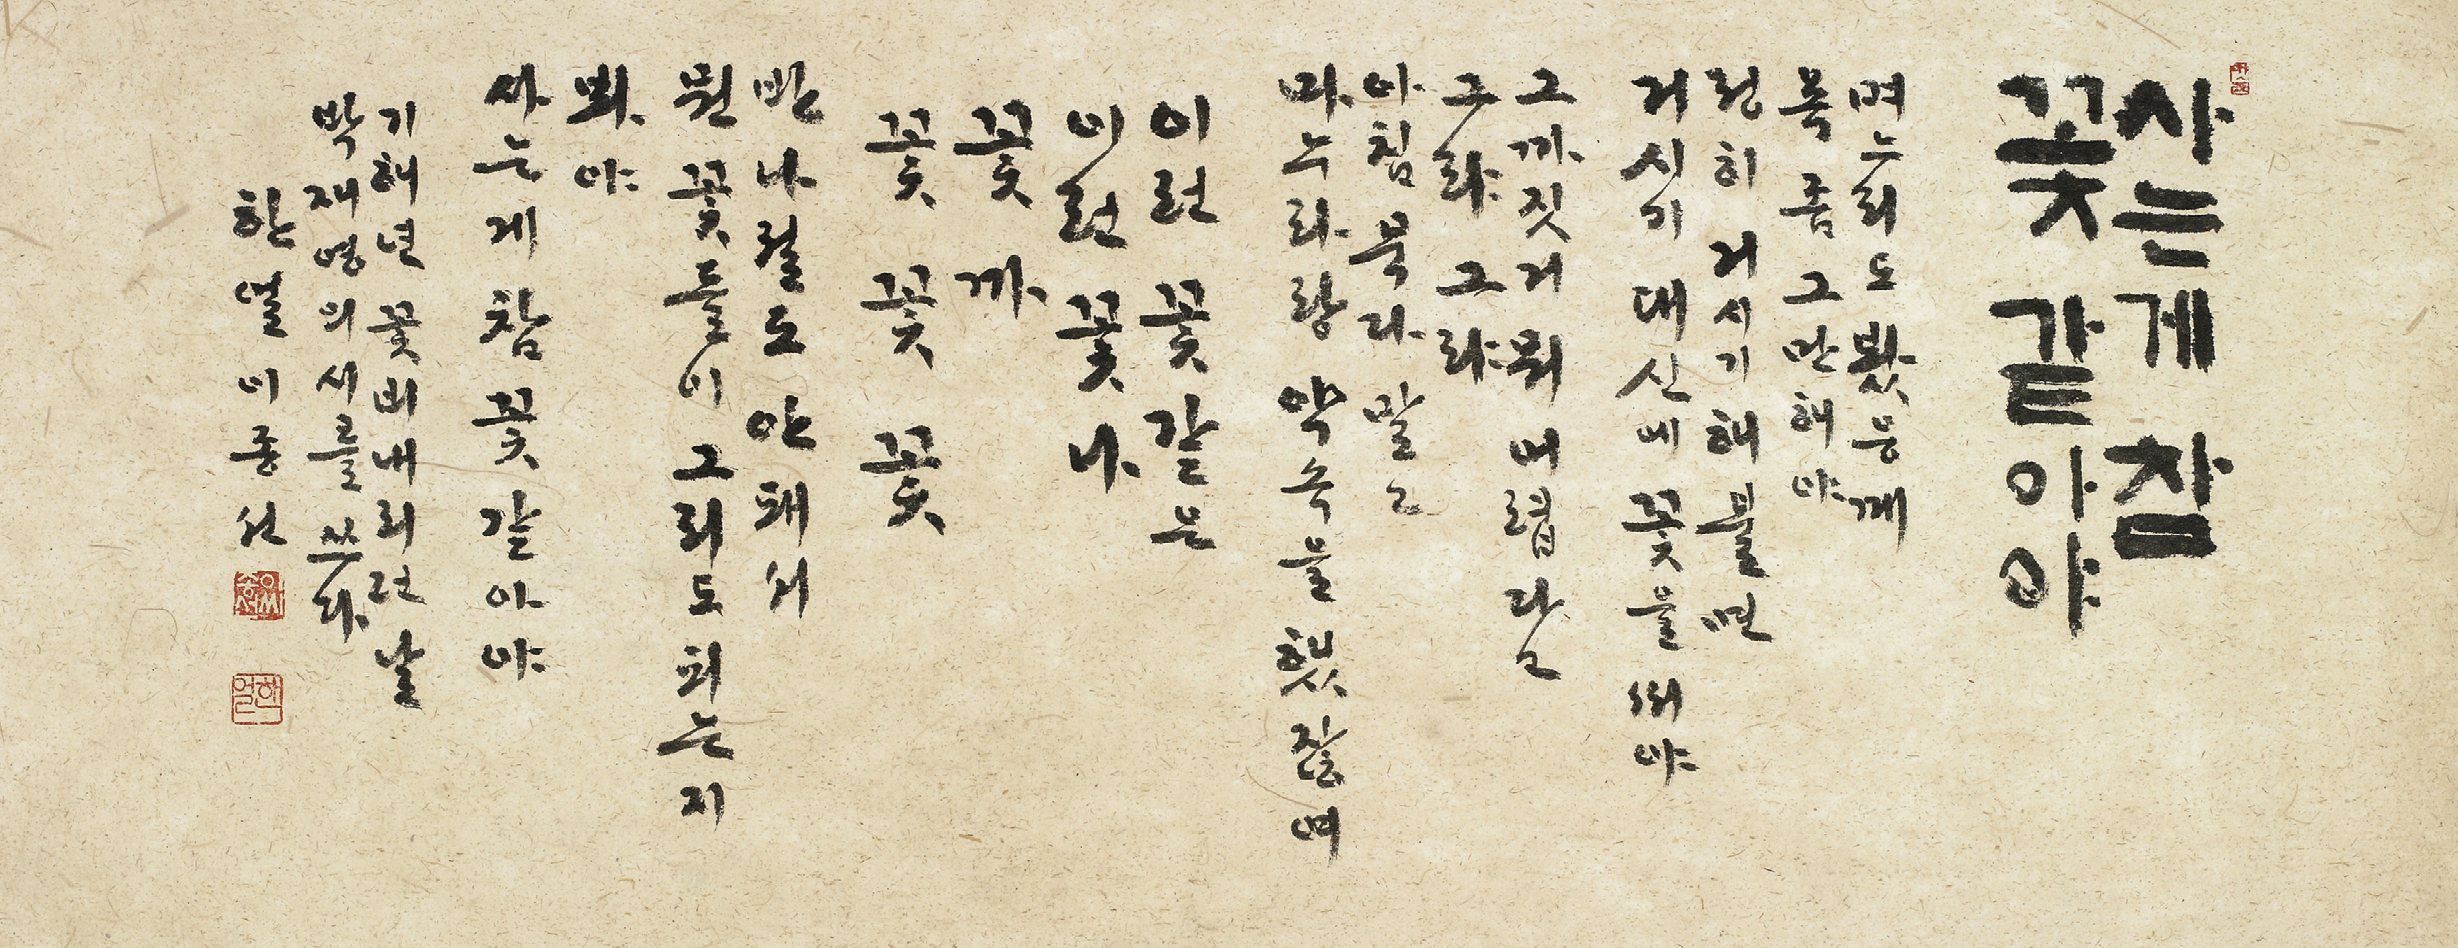 사는게 참
꽃 같아야
며느리도 봤응께
욕 좀 그만해야
정히 거시기 해불면
거시기 대신에 꽃을 써야
그까짓거 뭐 어렵다고
그랴 그랴
아침 묵다 말고
마누라랑 약속을 했잖여
이런 꽃같은
이런 꽃나
꽃까
꽃 꽃 꽃
반나절도 안돼서
뭔 꽃들이 그리도 피는지
봐야
사는게 참 꽃 같아야
기해년 꽃비 내리던 날
박재영의 시를 쓰다
한얼 이종선
한얼